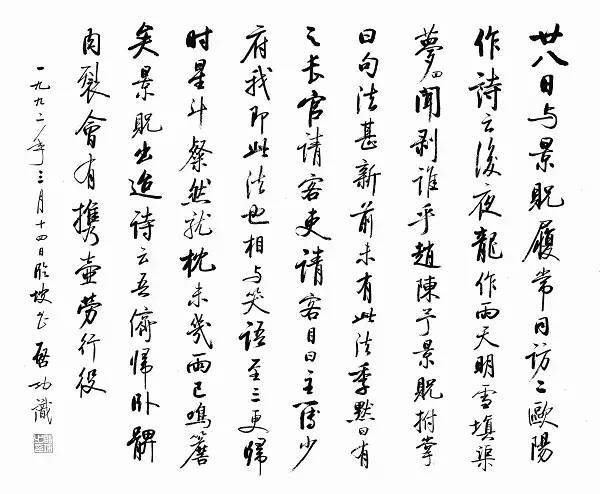 廿八日与景貺履常同访二歐陽
作詩云後夜龍作雨天明雪填渠
夢回聞剥誰乎趙陳予景貺拊掌
曰句法甚新前未有此法季默曰有
之长官請客吏請客目曰主簿少
府我即此法也相与笑語至三更歸
时星斗粲然就枕未幾雨已鳴簷
矣景貺出迨詩云吾儕歸卧髀
肉裂會有攜壺勞行役
一九九二年三月十四日臨坡 啓功識